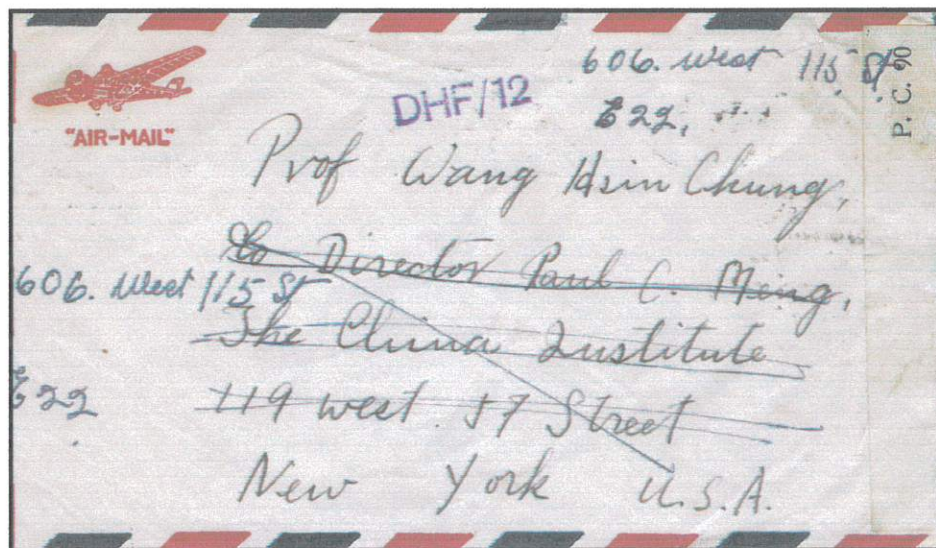 606. West 115 St
E22,
P. C. 90
DHF/12
"AIR-MAIL"
Prof Wang Hsin Chung,
c/o Director Paul C. Meng,
606. West 115 St
The China Institute
E22
119 west 57 Street
New York U.S.A.